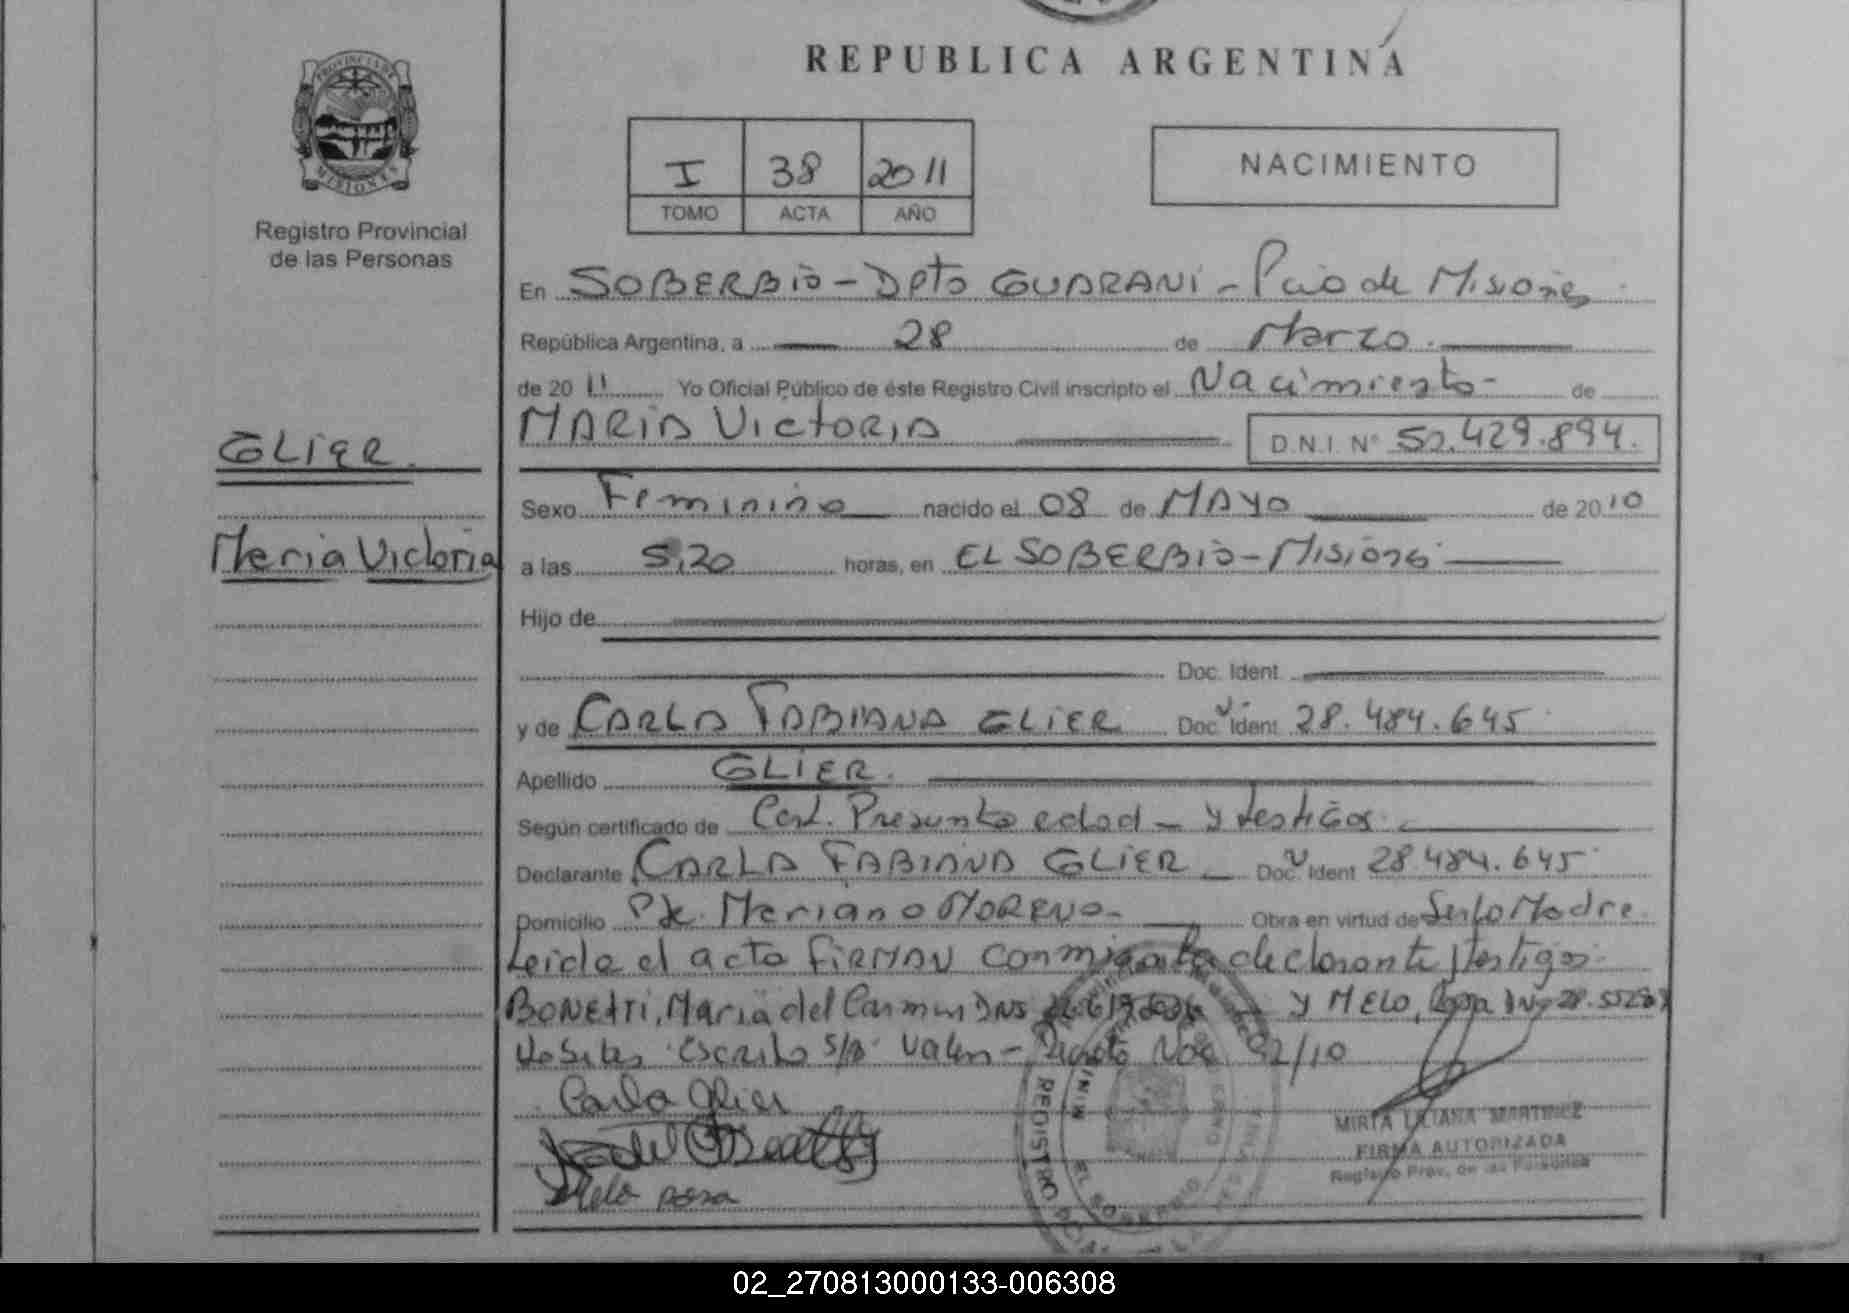 REPUBLICA ARGENTINA
PROVINCIA DE
MISIONES
Registro Provincial
de las Personas
I 38 2011
TOMO ACTA AÑO
NACIMIENTO
En SOBERBIO - Dpto GUARANI - Pcia de Misiones
República Argentina, a 28 de Marzo
de 20 11 Yo Oficial Público de éste Registro Civil inscripto el Nacimiento de
MARIA VICTORIA D.N.I. Nº 50.429.894.
GLIER
Maria Victoria
Sexo Feminino nacido el 08 de MAYO de 20 10
a las 5,20 horas, en EL SOBERBIO - Misiones
Hijo de
Doc. Ident.
y de CARLA FABIANA GLIER Doc. Ident 28.484.645
Apellido GLIER.
Según certificado de Cert. Presunta edad - y testigos.
Declarante CARLA FABIANA GLIER Doc. Ident 28.484.645
Domicilio Mariano MORENO Obra en virtud de Ser la Madre
Leida el acta FIRMAN conmigo la declarante testigos
Maria del Carmen DNI y MELO, Rosa
Escrito s/r Valen - 92/10
Carla Glier
Melo rosa
REGISTRO
EL SOBERBIO
MIRTA LILIANA MARTINEZ
FIRMA AUTORIZADA
Registro Prov. de las Personas
02_270813000133-006308